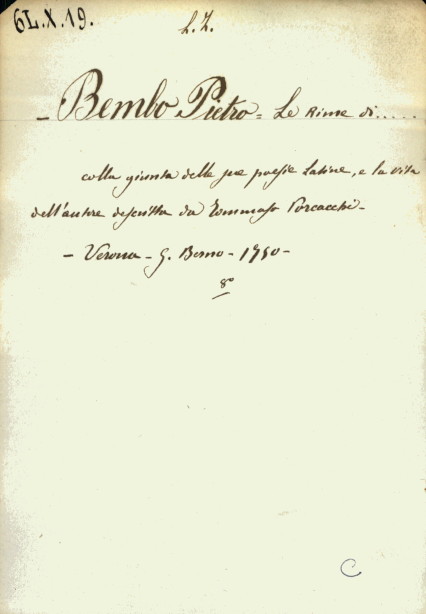 6L.X.19.
L.Z.
- Bembo Pietro = Le Rime di.....
colla giunta delle sue poesie Latine, e la vita
dell'autore descritta da Tommaso Porcacchi -
- Verona - G. Berno - 1750 -
8°
C